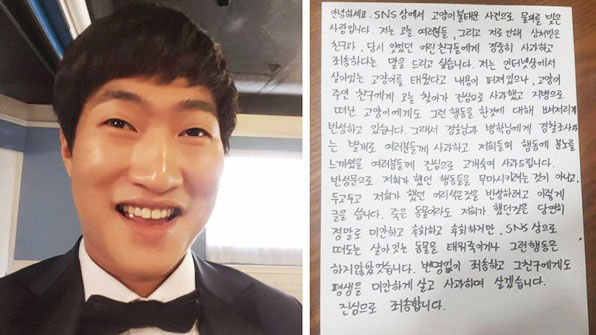 안녕하세요. SNS 상에서 고양이 불태운 사건으로 물의를 빚은
사람입니다. 저는 오늘 여러분들, 그리고 저로 인해 상처받은
친구와, 당시 있었던 어린친구들에게 정중히 사과하고
죄송하다는 말을 드리고 싶습니다. 저는 인터넷상에서
살아있는 고양이를 태웠다고 내용이 퍼져있으나, 고양이
주인 친구에게 오늘 찾아가 진심으로 사과했고 지병으로
떠난 고양이에게도 그런 행동을 한것에 대해 뼈저리게
반성하고 있습니다. 그래서 경찰님과
는 별개로 여러분들께 사과하고 저희들의 행동에 분노를
느끼셨을 여러분들께 진심으로 고개숙여 사과드립니다.
반성문으로 저희가 했던 행동들을 무마시키려는 것이 아니고,
두고두고 저희가 했던 어리석은것을 반성하려고 이렇게
글을 씁니다. 죽은 동물이라도 저희가 했던것은 당연히
정말로 미안하고 후회하고 후회하지만, SNS 상으로
떠도는 살아있는 동물을 태워죽이거나 그런행동은
하지않았었습니다. 변명없이 죄송하고 그친구에게도
평생을 미안하게 살고 사과하며 살겠습니다.
진심으로 죄송합니다.